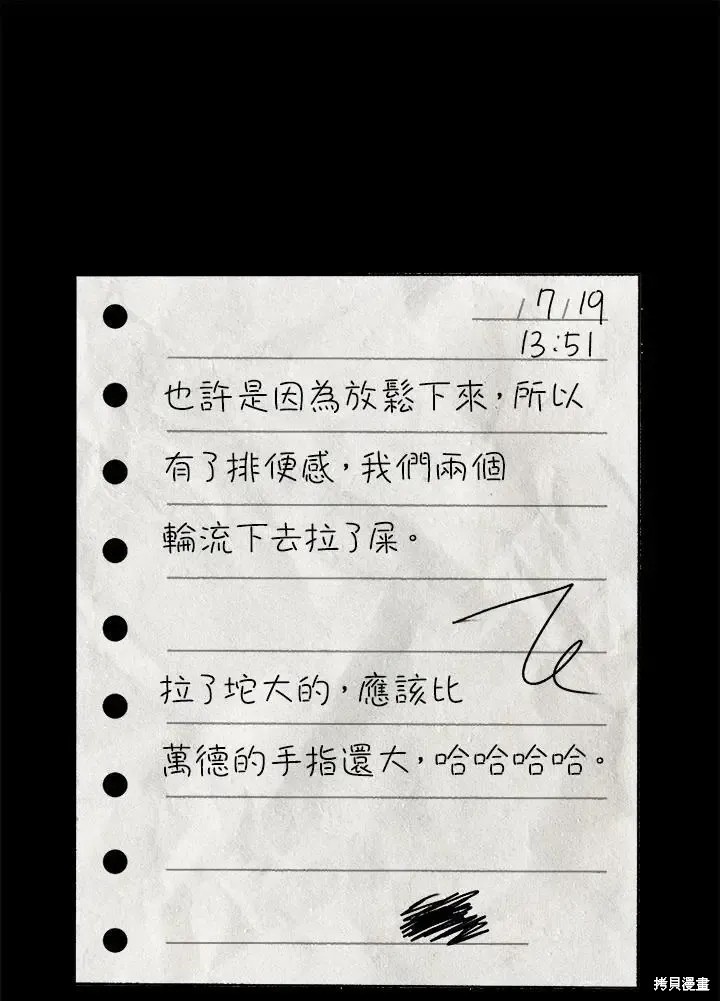 /7/19
13:51
也許是因為放鬆下來，所以
有了排便感，我們兩個
輪流下去拉了屎。
拉了坨大的，應該比
萬德的手指還大，哈哈哈哈。
拷貝漫畫